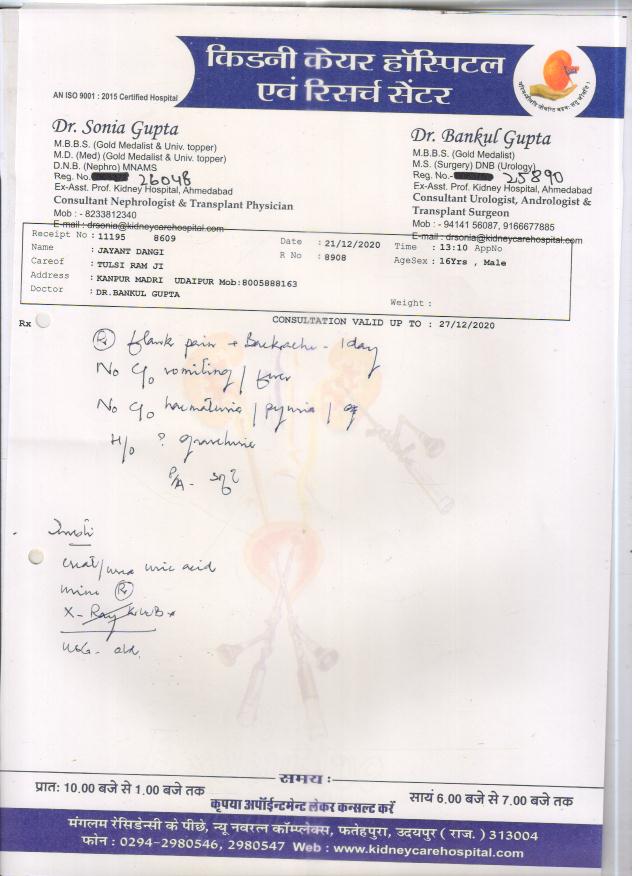 किडनी केयर हॉस्पिटल
एवं रिसर्च सेंटर
AN ISO 9001 : 2015 Certified Hospital
Dr. Sonia Gupta
M.B.B.S. (Gold Medalist & Univ. topper)
M.D. (Med) (Gold Medalist & Univ. topper)
D.N.B. (Nephro) MNAMS
Reg. No. 26048
Ex-Asst. Prof. Kidney Hospital, Ahmedabad
Consultant Nephrologist & Transplant Physician
Mob : - 8233812340
E-mail : drsonia@kidneycarehospital.com
Dr. Bankul Gupta
M.B.B.S. (Gold Medalist)
M.S. (Surgery) DNB (Urology)
Reg. No.- 25890
Ex-Asst. Prof. Kidney Hospital, Ahmedabad
Consultant Urologist, Andrologist &
Transplant Surgeon
Mob : - 94141 56087, 9166677885
E-mail : drsonia@kidneycarehospital.com
Receipt No : 11195 8609 Date : 21/12/2020 Time : 13:10 AppNo
Name : JAYANT DANGI R No : 8908 AgeSex : 16Yrs , Male
Careof : TULSI RAM JI
Address : KANPUR MADRI UDAIPUR Mob:8005888163
Doctor : DR.BANKUL GUPTA Weight :
Rx CONSULTATION VALID UP TO : 27/12/2020
flank pain + Backache - 1 day
No C/o vomiting / fever
No C/o haematuria / pyuria /
H/o ?
P/A -
creat/urea uric acid
urine (R)
X-Ray KUB
समय :
प्रात: 10.00 बजे से 1.00 बजे तक
कृपया अपॉईन्टमेन्ट लेकर कन्सल्ट करें
सायं 6.00 बजे से 7.00 बजे तक
मंगलम रेसिडेन्सी के पीछे, न्यू नवरत्न कॉम्प्लेक्स, फतेहपुरा, उदयपुर ( राज. ) 313004
फोन : 0294-2980546, 2980547 Web : www.kidneycarehospital.com